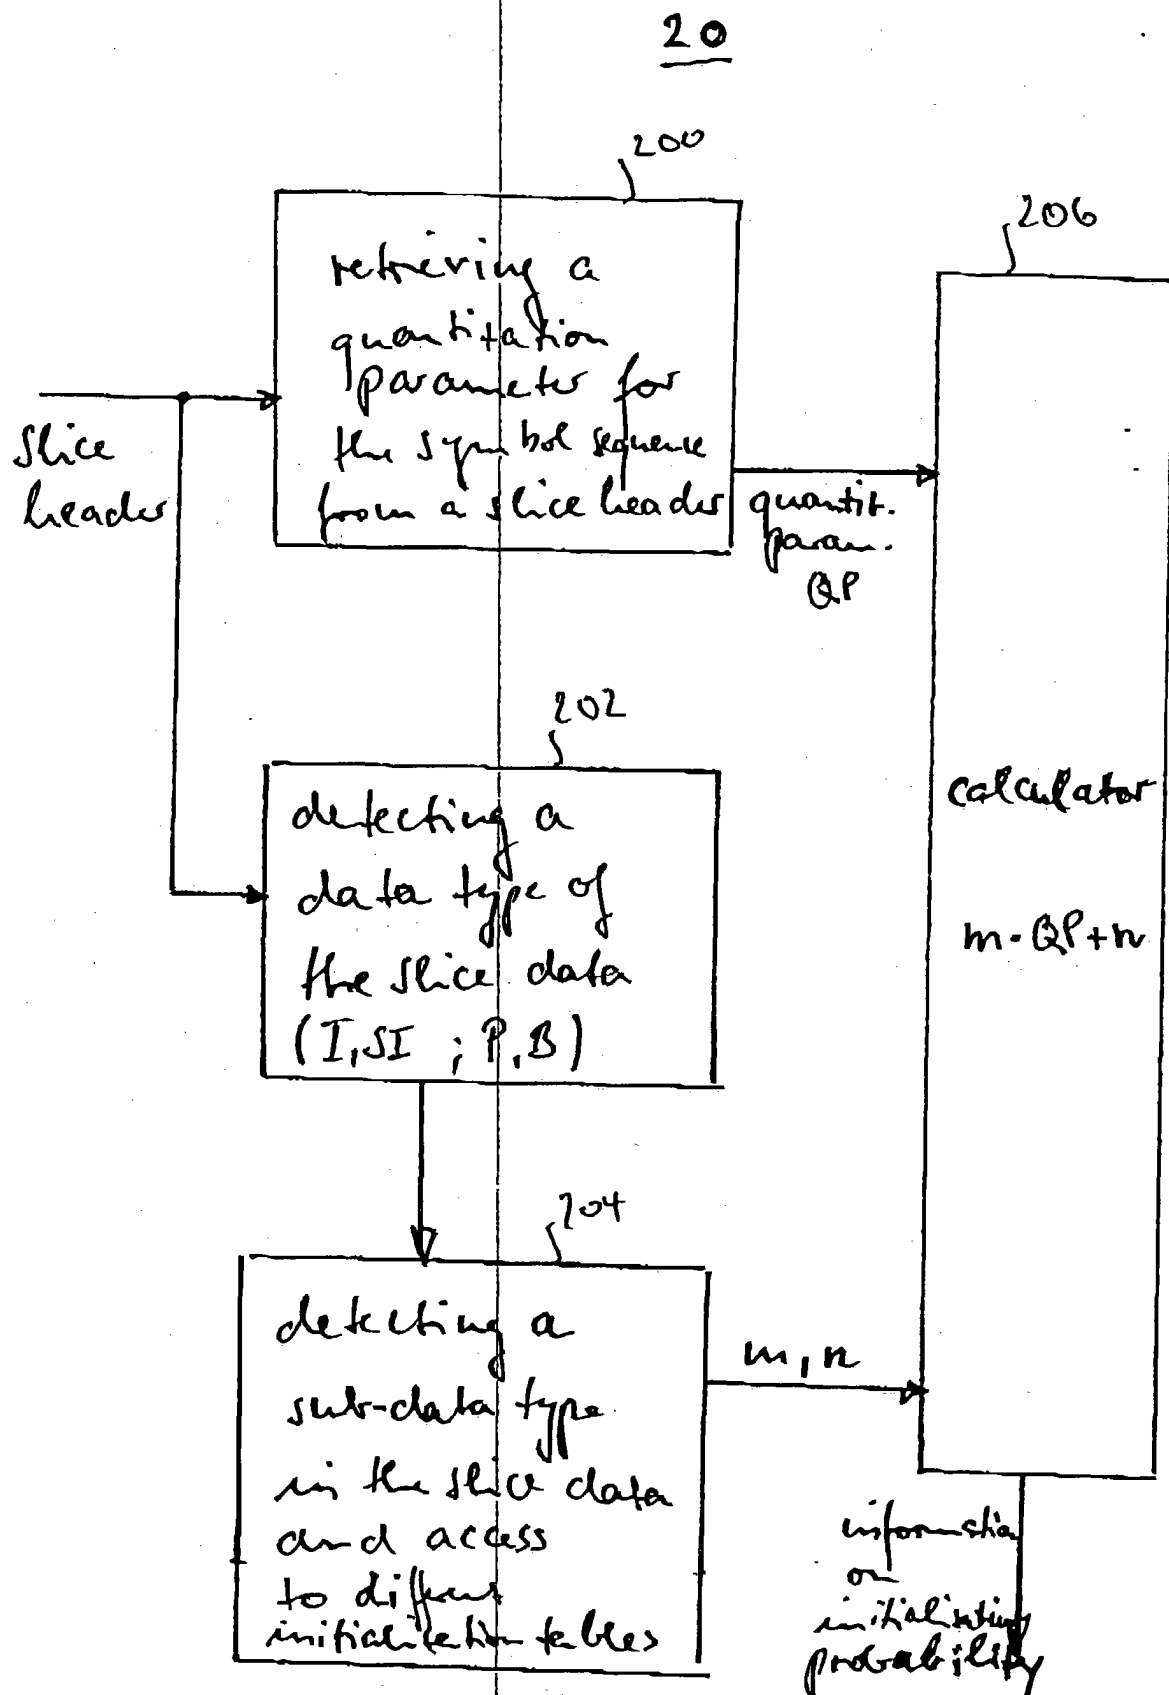 20
200
retrieving a
quantitation
parameter for
the symbol sequence
from a slice header
slice
header
quantit.
param.
QP
206
calculator
m·QP+n
202
detecting a
data type of
the slice data
(I,SI ; P,B)
204
detecting a
sub-data type
in the slice data
and access
to different
initialisation tables
m,n
information
on
initialisation
probability